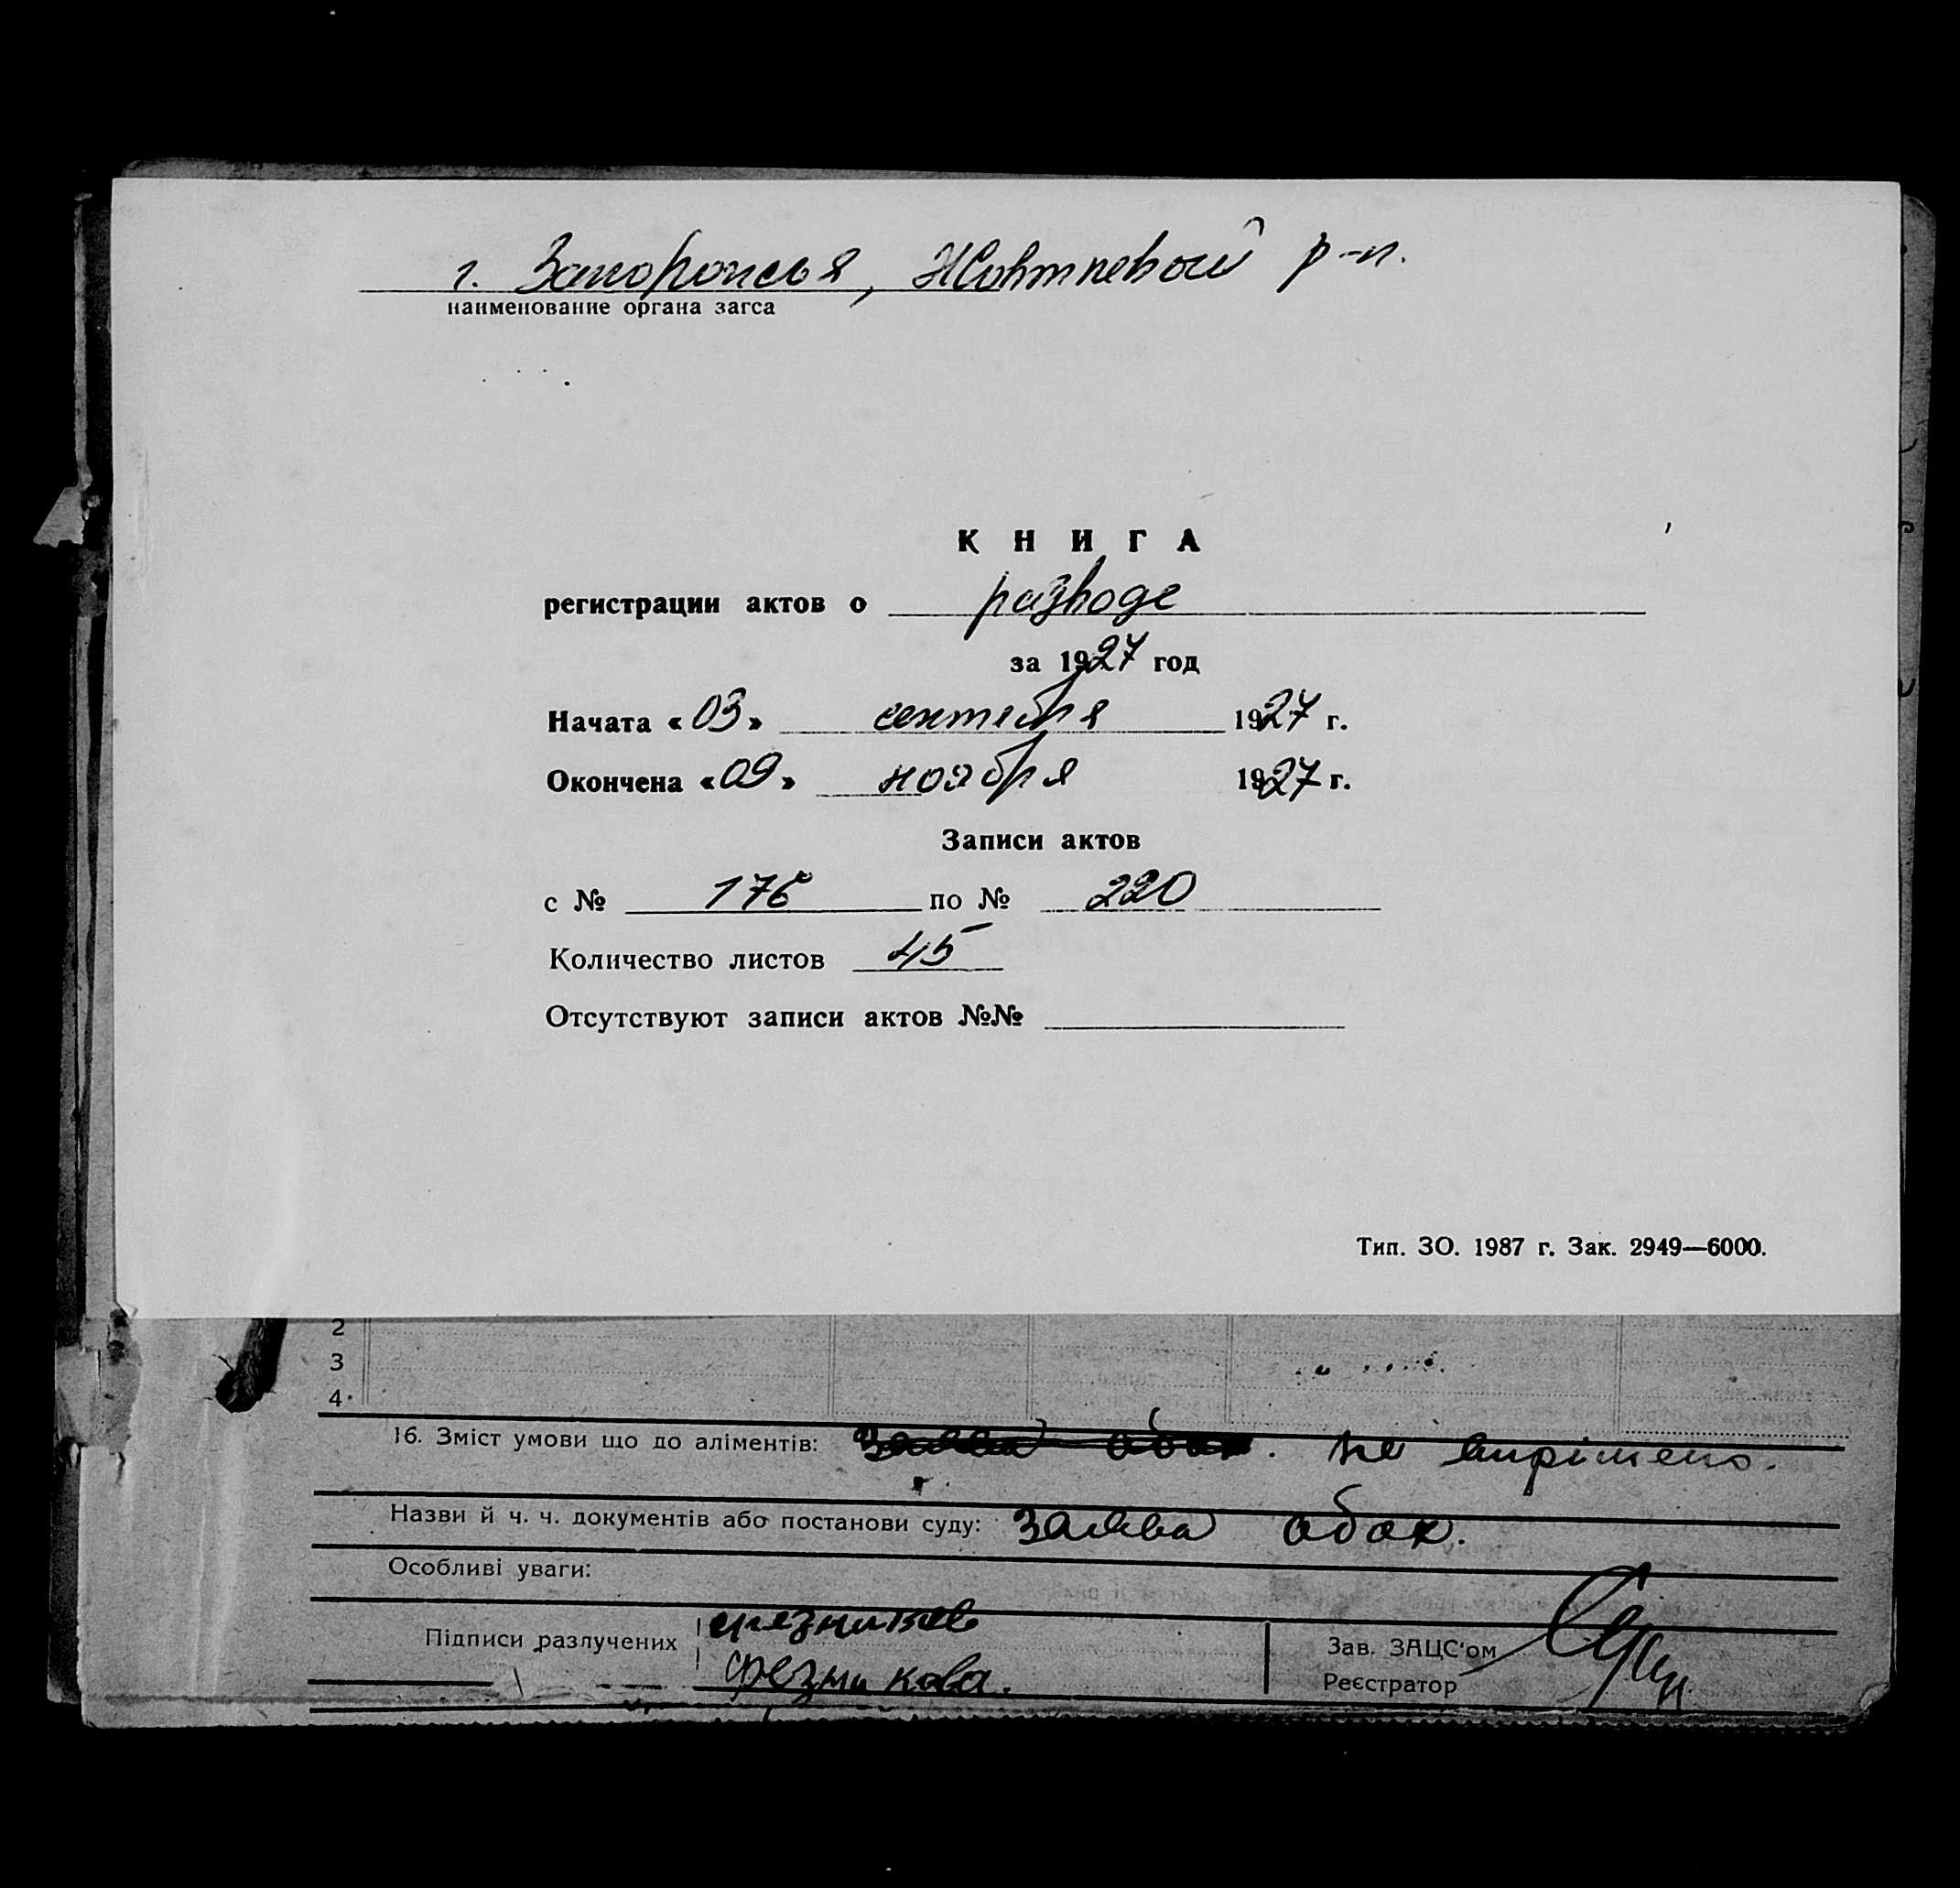 г. Запорожья, Жовтневый р-н.
наименование органа загса
КНИГА
регистрации актов о разводе
за 1927 год
Начата «03» сентября 1927 г.
Окончена «09» ноября 1927 г.
Записи актов
с № 176 по № 220
Количество листов 45
Отсутствуют записи актов №№
Тип. ЗО. 1987 г. Зак. 2949—6000.
2
3
4
16. Зміст умови що до аліментів: Заява обох. не вирішено.
Назви й ч. ч. документів або постанови суду: Заява обох.
Особливі уваги:
Підписи разлучених
Зав. ЗАЦС'ом
Реєстратор